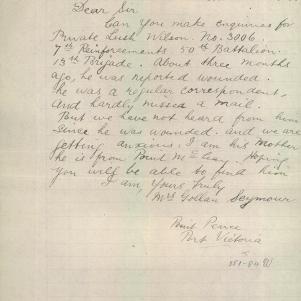 Dear Sir
Can you make enquiries for
Private Wilson. No. 3006.
7th Reinforcements 50th Battalion.
13th Brigade. About three months
ago, he was reported wounded.
he was a regular correspondent,
and hardly missed a mail.
But we have not heard from him
since he was wounded. and we are
getting anxious, I am his Mother
he is from Point Hoping
you will be able to find him
I am Yours Truly
Mrs Gollan Seymour
Point Pearce
Port Victoria